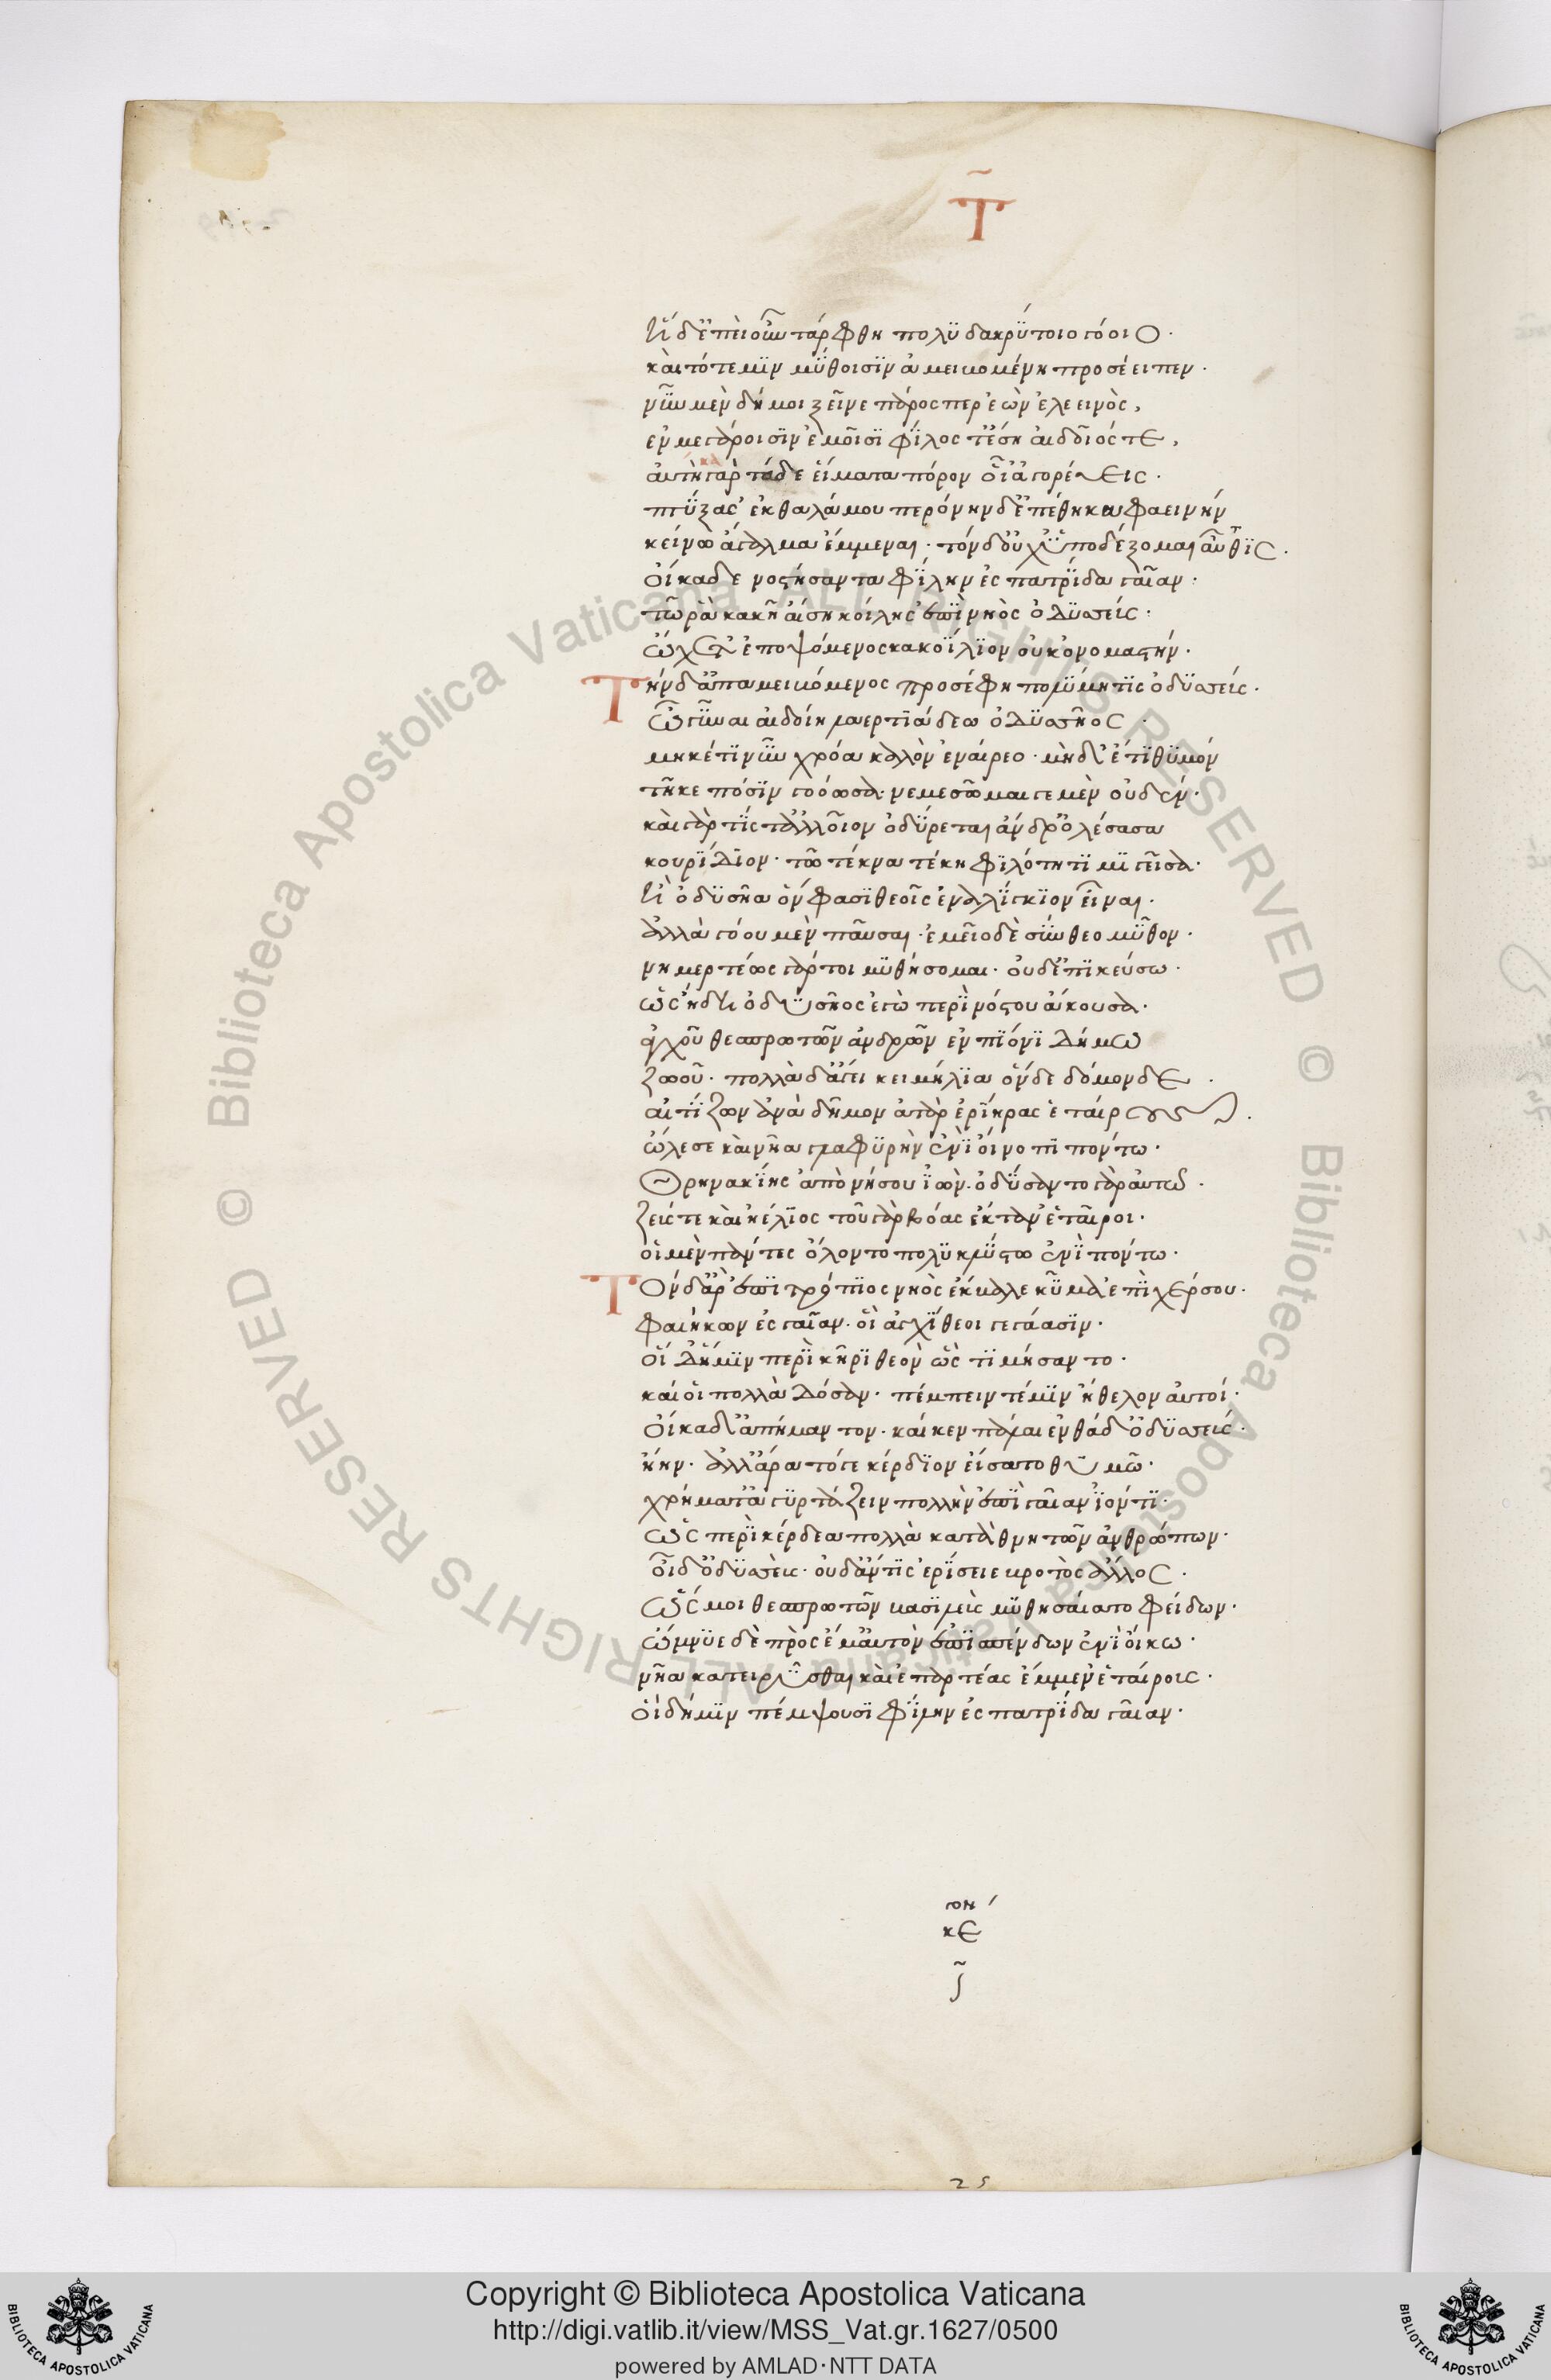 Τ̃
ἡ δ' ἐπεὶ οὖν τάρφθη πολϋδακρΰτοιο γόοιο·
καὶ τότε μϊν μΰθοισϊν ἀμειβομένη προσέειπεν·
νῦν μὲν δή μοι ξεῖνε πάρος περ ἐὼν ἐλεεινὸς,
ἐν μεγάροισϊν ἐμοῖσϊ φίλος τ' ἔση αἰδοῖός τε,
αὐτὴ γὰρ τάδε εἵματα πόρον οἷ' ἀγορεύεις·
πτύξας' ἐκ θαλάμου περόνην δ' ἐπέθηκα φαεινήν
κείνω ἄγαλμα ἔμμεναι· τόν δ' οὐχ ὑποδέξομαι αὖθϊς·
οἴκαδε νοστήσαντα φίλην ἐς πατρίδα γαῖαν·
τῶ ῥὰ κακῆ αἴση κοίλης ἐπῒ νηὸς ὀδϋσσεύς·
ὤχετ' ἐποψόμενος κακοΐλϊον οὐκ ὀνομαστήν·
Τὴν δ' ἀπαμειβόμενος προσέφη πολΰμητϊς ὀδϋσσεύς·
ὦ γύναι αἰδοίη λαερτϊάδεω ὀδϋσσῆος
μηκέτϊ νῦν χρόα καλὸν ἐναίρεο· μὴδ' ἔτϊ θϋμόν
τῆκε πόσϊν γοόωσα· νεμεσῶμαι γε μὲν οὐδέν·
καὶ γὰρ τίς τ' ἀλλοῖον ὀδΰρεται ἄνδρ' ὀλέσασα
κουρΐδϊον· τῶ τέκνα τέκη φϊλότητϊ μϊγεῖσα·
ἢ ὀδϋσῆα ὅν φασϊ θεοῖς ἐναλΐγκϊον εἶναι·
ἀλλὰ γόου μὲν παῦσαι· ἐμεῖο δὲ σύνθεο μῦθον·
νημερτέως γάρ τοι μϋθήσομαι· οὐδ' ἐπϊκεύσω·
ὡς ἤδη ὀδϋσῆος ἐγὼ περῒ νόστου ἄκουσα·
ἀγχοῦ θεσπρωτῶν ἀνδρῶν ἐν πΐονϊ δήμω
ζωοῦ· πολλὰ δ' ἄγει κειμήλϊα ὅνδε δόμονδε·
αἰτΐζων ἀνὰ δῆμον ἀτὰρ ἐρΐηρας ἑταίρους·
ὤλεσε καὶ νῆα γλαφϋρὴν ἐνῒ οἴνοπϊ πόντω·
Θρηνακΐης ἀπὸ νήσου ἰών· ὀδΰσαντο γὰρ αὐτῶ·
ζεύς τε καὶ ἠέλϊος τοῦ γὰρ βόας ἔκταν' ἑταῖροι·
οἱ μὲν πάντες ὄλοντο πολϋκλΰστω ἐνῒ πόντω·
Τὸν δ' ἄρ' ἐπῒ τρόπϊος νηὸς ἔκβαλε κῦμα ἐπῒ χέρσου·
φαιήκων ἐς γαῖαν· οἳ ἀγχΐθεοι γεγάασϊν·
οἳ δήμϊν περῒ κῆρϊ θεὸν ὣς τϊμήσαντο·
καί οἱ πολλὰ δόσαν· πέμπειν τέ μϊν ἤθελον αὐτοί·
οἴκαδ' ἀπήμαντον· καί κεν πάλαι ἐνθάδ' ὀδϋσσεύς·
ἤην· ἀλλ' ἄρα τότε κέρδϊον εἴσατο θυμῶ·
χρήματ' ἀγϋρτάζειν πολλὴν ἐπῒ γαῖαν ἰόντϊ·
ὣς περῒ κέρδεα πολλὰ κατὰ θνητῶν ἀνθρώπων·
οἶδ' ὀδϋσσεὺς· οὐδ' ἄν τϊς ἐρΐσειε βροτὸς ἄλλος·
ὥς μοι θεσπρωτῶν βασϊλεὺς μϋθήσατο φείδων·
ὤμνϋε δὲ πρὸς ἔμ' αὐτὸν ἐπϊσπένδων ἐνῒ οἴκω·
νῆα κατειρύσθαι καὶ ἐπαρτέας ἔμμεν' ἑταίρους·
οἳ δή μϊν πέμψουσϊ φΐλην ἐς πατρΐδα γαῖαν·
κε
25
Copyright © Biblioteca Apostolica Vaticana
http://digi.vatlib.it/view/MSS_Vat.gr.1627/0500
powered by AMLAD·NTT DATA
BIBLIOTECA APOSTOLICA VATICANA
BIBLIOTECA APOSTOLICA VATICANA
© Biblioteca Apostolica Vaticana ALL RIGHTS RESERVED © Biblioteca Apostolica Vaticana ALL RIGHTS RESERVED